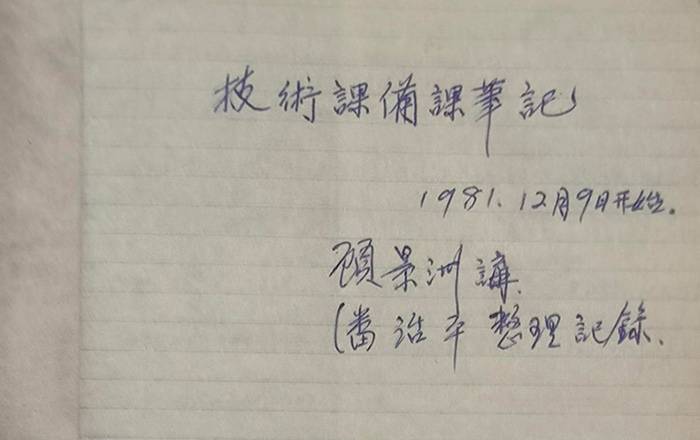 技術課備課筆記
1981.12月9日开始.
顾景洲講.
(潘浩平整理記錄.